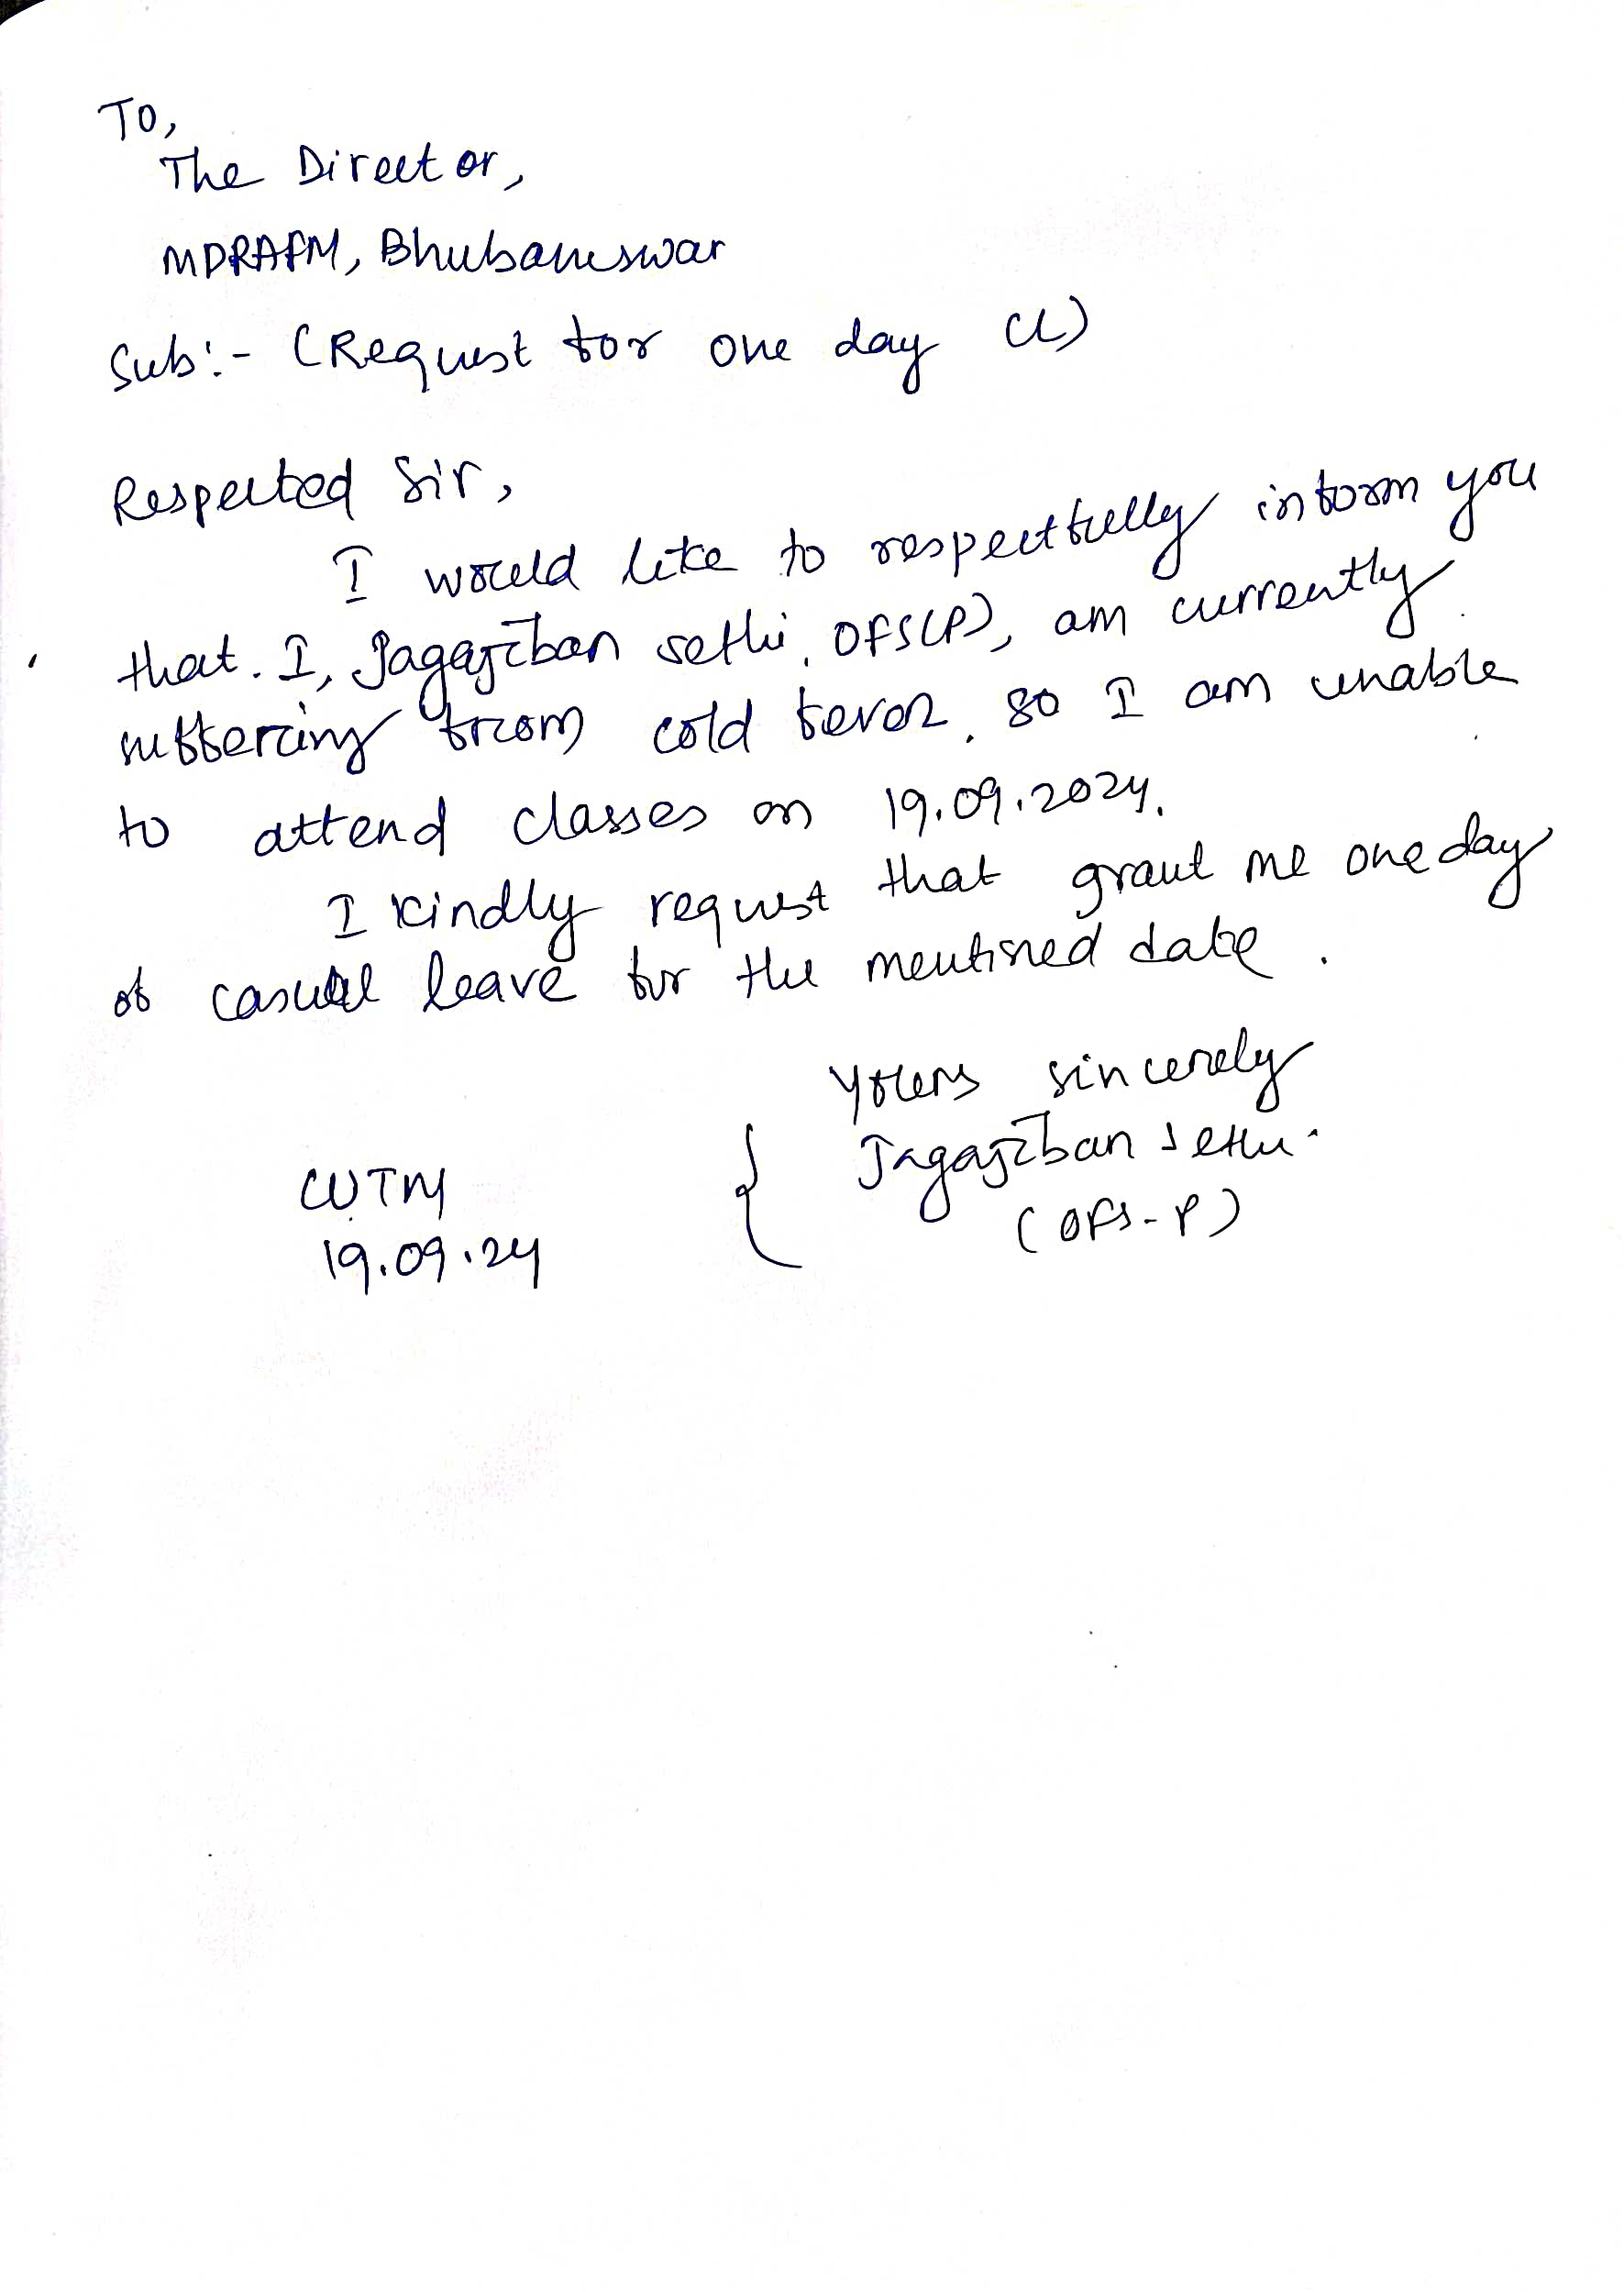 To,
The Director,
MDRAFM, Bhubaneswar
Sub:- (Request for one day CL)
Respected Sir,
I would like to respectfully inform you
that. I, Jagajiban sethi, OFS(P), am currently
suffering from cold fever. so I am unable
to attend classes on 19.09.2024.
I kindly request that grant me one day
of casual leave for the mentioned date.
Yours sincerely
Jagajiban Sethi.
(OFS-P)
CUTM
19.09.24